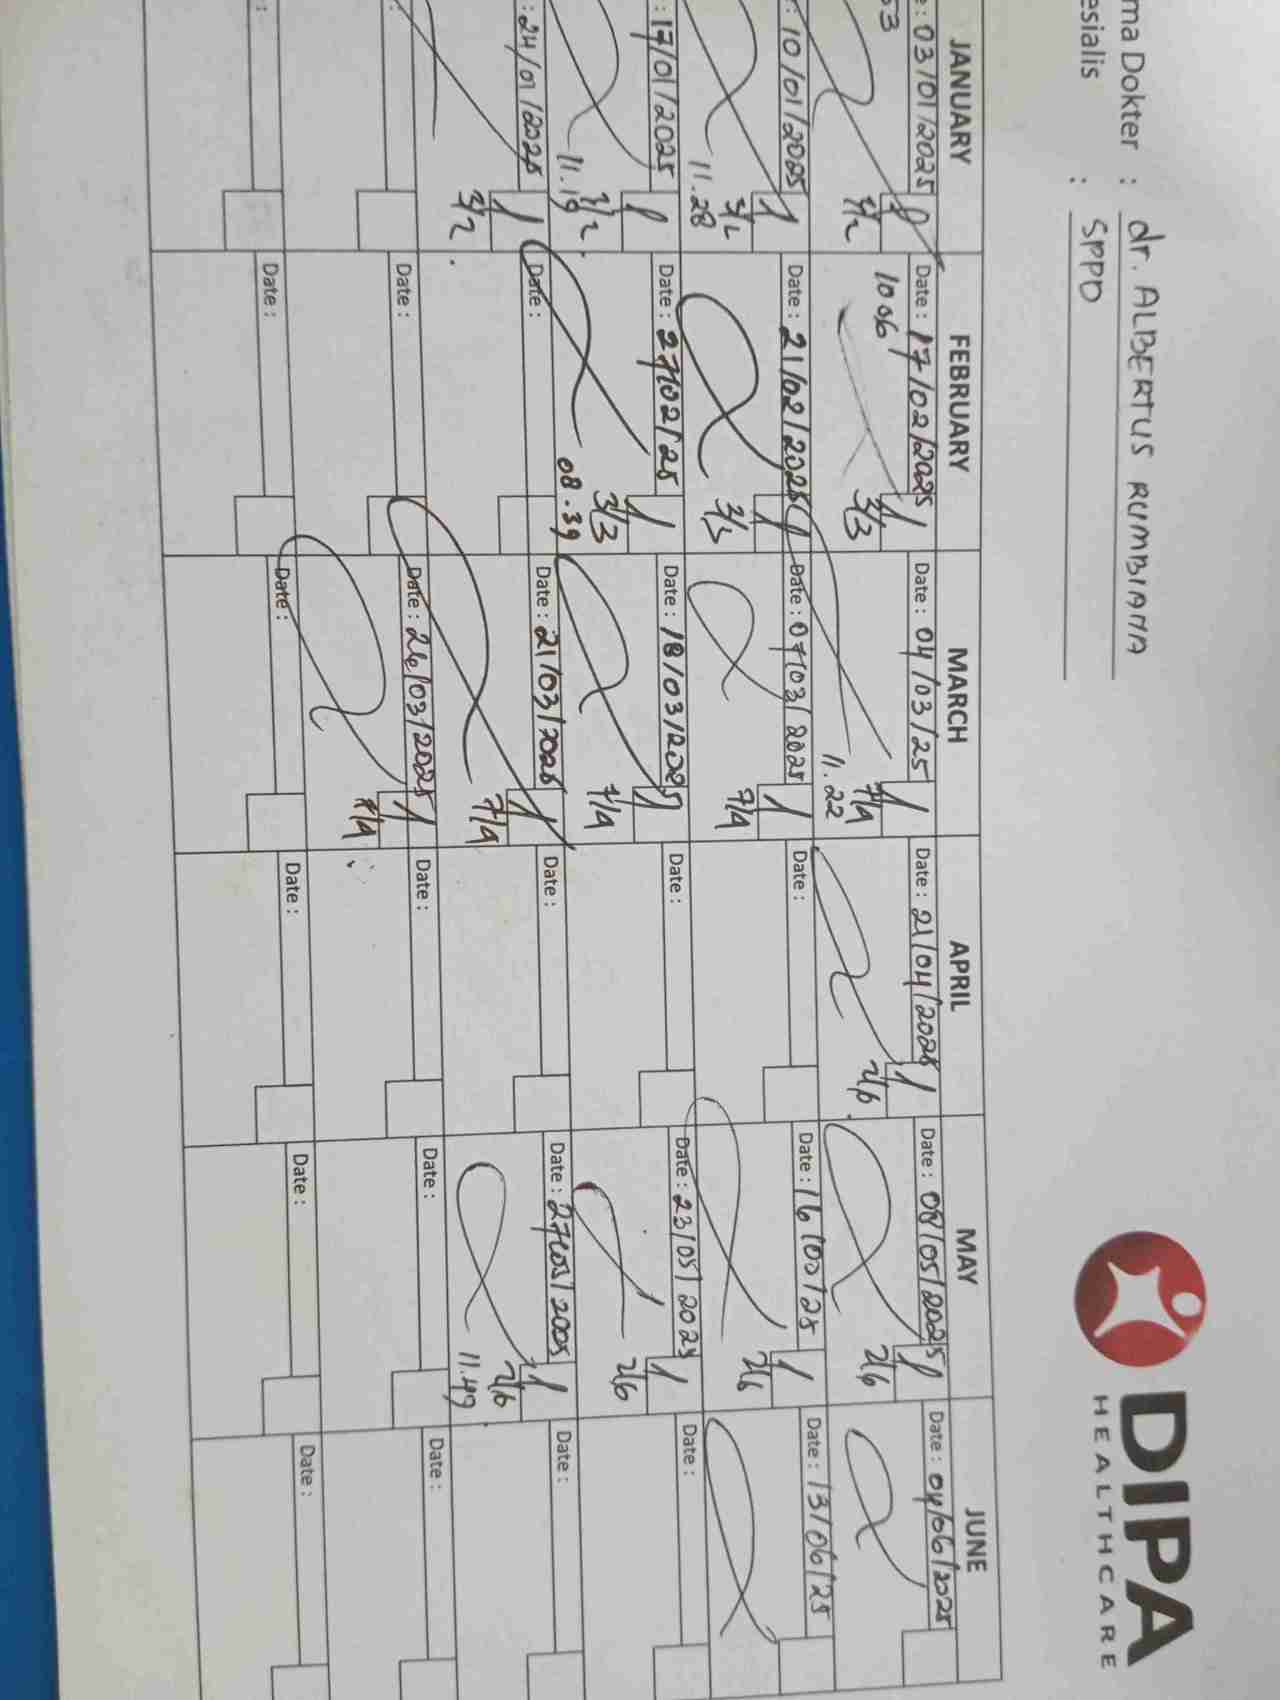 DIPA
HEALTHCARE
ma Dokter : dr. ALBERTUS RUMBIANA
esialis : SPPD
JANUARY FEBRUARY MARCH APRIL MAY JUNE
: 03/01/2025 Date : 17/02/2025 Date : 04/03/25 Date : 21/04/2025 Date : 08/05/2025 Date : 04/06/2025
53 3/2 1006 3/3 7/4 11.22 2/6 2/6
: 10/01/2025 Date : 21/02/2025 Date : 07/03/2025 Date : Date : 16/05/25 Date : 13/06/25
3/2 11.28 3/3 7/4 2/6
: 17/01/2025 Date : 27/02/25 Date : 18/03/2025 Date : Date : 23/05/2025 Date :
3/2 11.19 3/3 08.39 7/4 2/6
: 24/01/2025 Date : Date : 21/03/2025 Date : Date : 27/05/2025 Date :
3/2 7/4 2/6 11.49
: Date : Date : 26/03/2025 Date : Date : Date :
7/4
: Date : Date : Date : Date : Date :